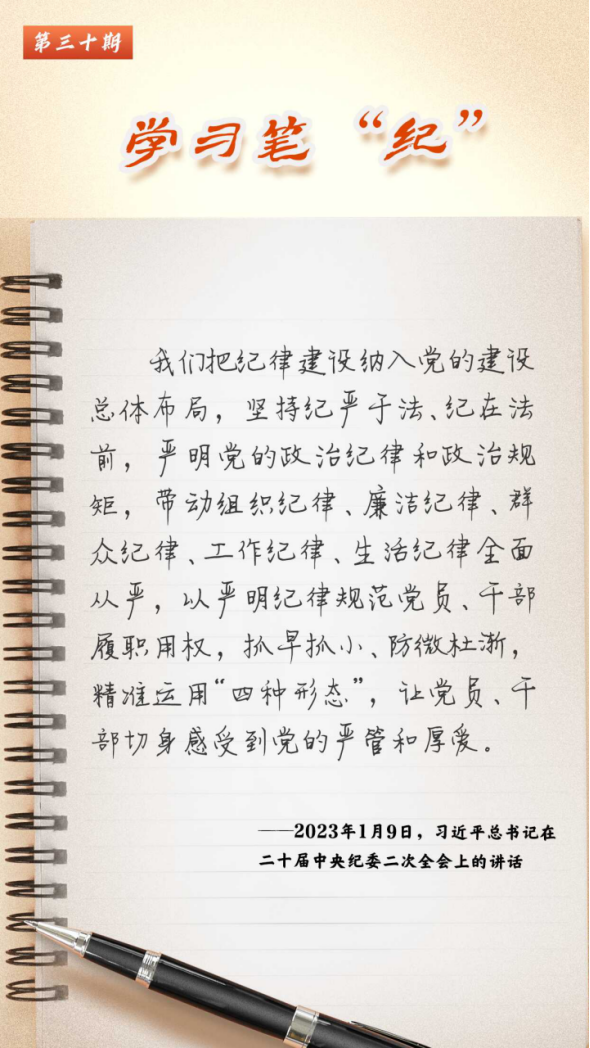 第三十期
学习笔“纪”
我们把纪律建设纳入党的建设
总体布局，坚持纪严于法、纪在法
前，严明党的政治纪律和政治规
矩，带动组织纪律、廉洁纪律、群
众纪律、工作纪律、生活纪律全面
从严，以严明纪律规范党员、干部
履职用权，抓早抓小、防微杜渐，
精准运用“四种形态”，让党员、干
部切身感受到党的严管和厚爱。
——2023年1月9日，习近平总书记在
二十届中央纪委二次全会上的讲话